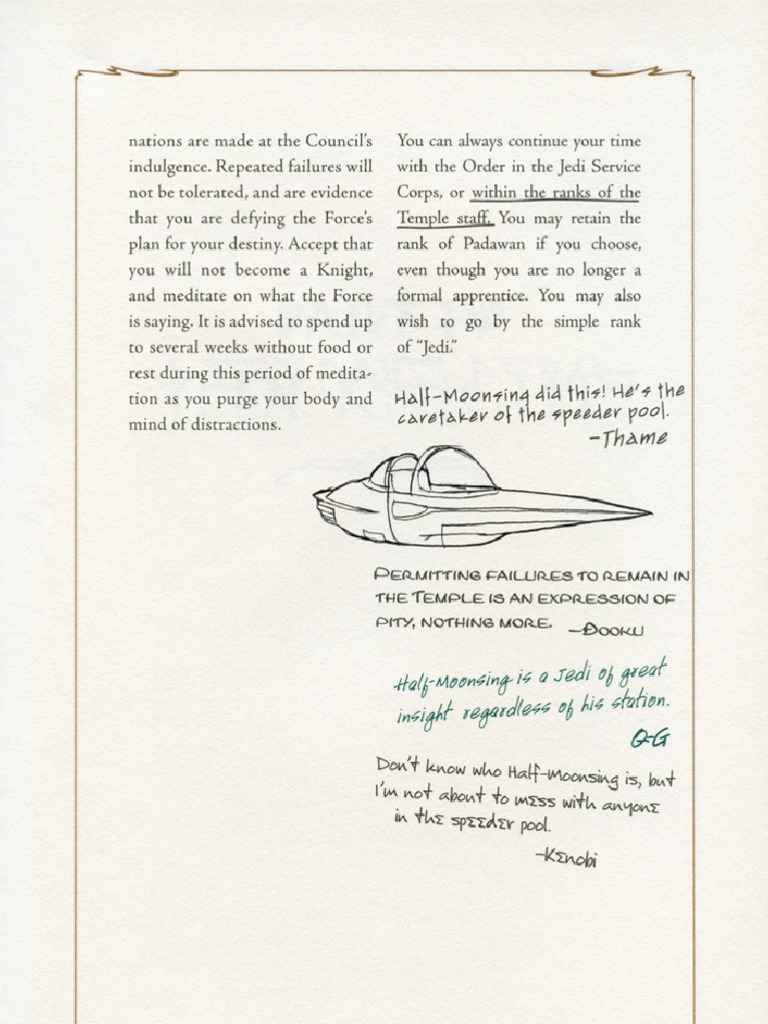 nations are made at the Council's
indulgence. Repeated failures will
not be tolerated, and are evidence
that you are defying the Force's
plan for your destiny. Accept that
you will not become a Knight,
and meditate on what the Force
is saying. It is advised to spend up
to several weeks without food or
rest during this period of medita-
tion as you purge your body and
mind of distractions.
You can always continue your time
with the Order in the Jedi Service
Corps, or within the ranks of the
Temple staff. You may retain the
rank of Padawan if you choose,
even though you are no longer a
formal apprentice. You may also
wish to go by the simple rank
of “Jedi.”
Half-Moonsing did this! He's the
caretaker of the speeder pool.
-Thame
PERMITTING FAILURES TO REMAIN IN
THE TEMPLE IS AN EXPRESSION OF
PITY, NOTHING MORE.
-DOOKU
Half-Moonsing is a Jedi of great
insight regardless of his station.
Q-G
Don't know who Half-Moonsing is, but
I'm not about to mess with anyone
in the speeder pool.
-Kenobi